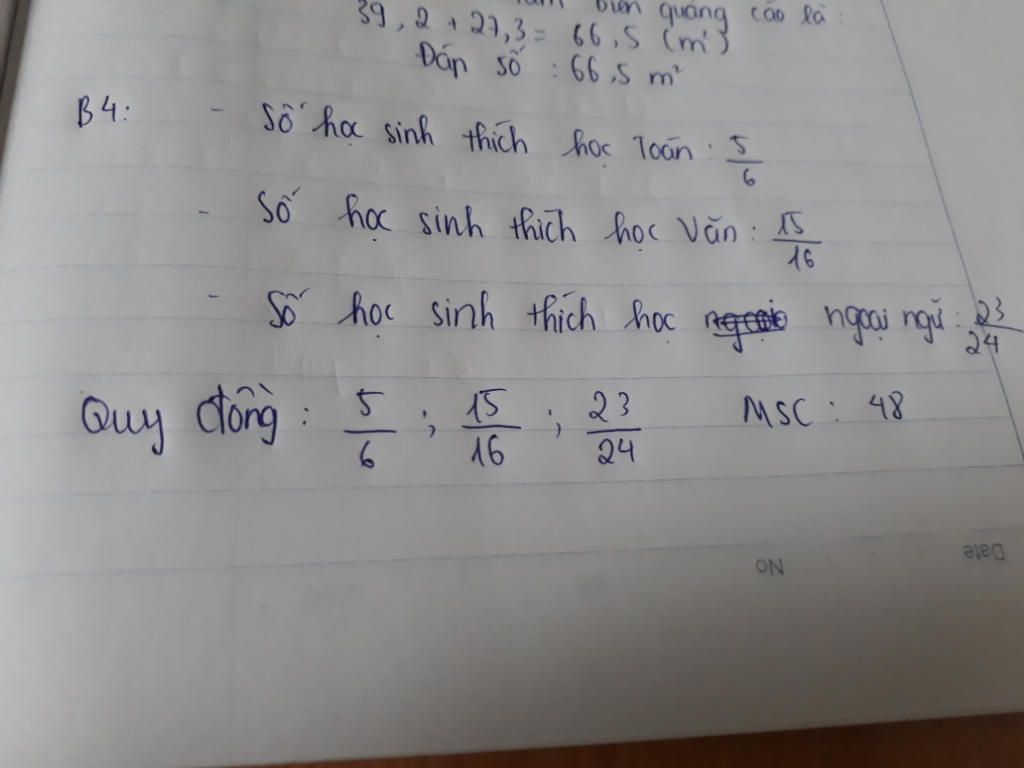 biển quảng cáo là:
39,2 + 27,3 = 66,5 (m²)
Đáp số : 66,5 m²
B4: - Số học sinh thích học Toán : 5/6
- Số học sinh thích học Văn : 15/16
- Số học sinh thích học ngoại ngữ : 23/24
Quy đồng : 5/6 ; 15/16 ; 23/24 MSC : 48
No Date